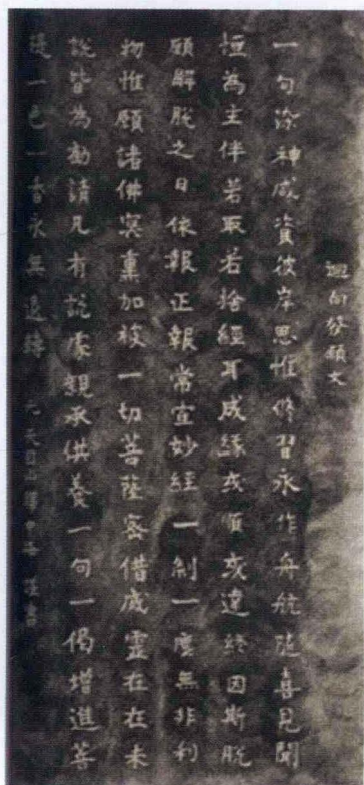 迴向發願文
一句染神咸資彼岸思惟修習永作舟航隨喜見聞
恒為主伴若取若捨經耳成緣或順或違終因斯脫
願解脫之日依報正報常宣妙經一剎一塵無非利
物惟願諸佛冥熏加被一切菩薩密借威靈在在未
說皆為勸請凡有說處親承供養一句一偈增進菩
提一色一香永無退轉 元天目山